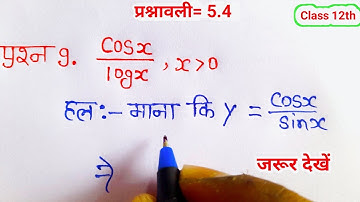 प्रश्नावली= 5.4
Class 12th
प्रश्न 9. cosx/logx , x>0
हल:- माना कि y = cosx/sinx
⇒
जरूर देखें